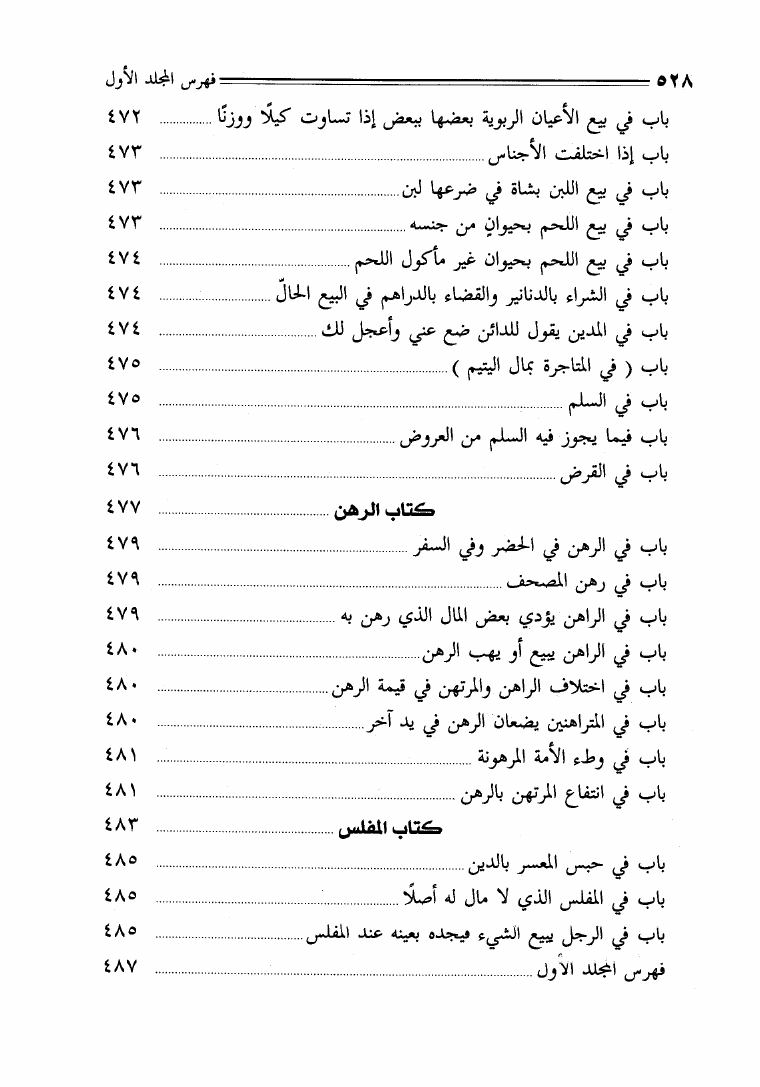 ٥٢٨ فهرس المجلد الأول
باب في بيع الأعيان الربوية بعضها ببعض إذا تساوت كيلًا ووزنًا ............... ٤٧٢
باب إذا اختلفت الأجناس ............... ٤٧٣
باب في بيع اللبن بشاة في ضرعها لبن ............... ٤٧٣
باب في بيع اللحم بحيوانٍ من جنسه ............... ٤٧٣
باب في بيع اللحم بحيوان غير مأكول اللحم ............... ٤٧٤
باب في الشراء بالدنانير والقضاء بالدراهم في البيع الحالّ ............... ٤٧٤
باب في المدين يقول للدائن ضع عني وأعجل لك ............... ٤٧٤
باب ( في المتاجرة بمال اليتيم ) ............... ٤٧٥
باب في السلم ............... ٤٧٥
باب فيما يجوز فيه السلم من العروض ............... ٤٧٦
باب في القرض ............... ٤٧٦
كتاب الرهن ............... ٤٧٧
باب في الرهن في الحضر وفي السفر ............... ٤٧٩
باب في رهن المصحف ............... ٤٧٩
باب في الراهن يؤدي بعض المال الذي رهن به ............... ٤٧٩
باب في الراهن يبيع أو يهب الرهن ............... ٤٨٠
باب في اختلاف الراهن والمرتهن في قيمة الرهن ............... ٤٨٠
باب في المتراهنين يضعان الرهن في يد آخر ............... ٤٨٠
باب في وطء الأمة المرهونة ............... ٤٨١
باب في انتفاع المرتهن بالرهن ............... ٤٨١
كتاب المفلس ............... ٤٨٣
باب في حبس المعسر بالدين ............... ٤٨٥
باب في المفلس الذي لا مال له أصلًا ............... ٤٨٥
باب في الرجل يبيع الشيء فيجده بعينه عند المفلس ............... ٤٨٥
فهرس المجلد الأول ............... ٤٨٧